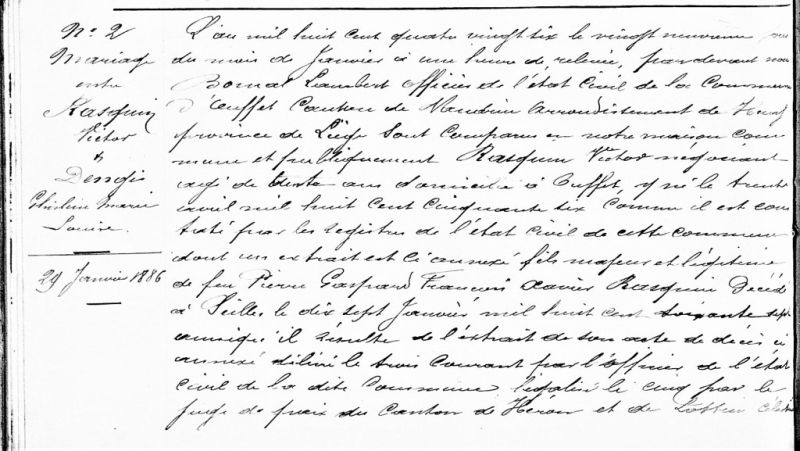 N° 2
Mariage
entre
Rasquin
Victor
&
Dengis
Ghisline Marie
Louise.
29 Janvier 1886
L'an mil huit cent quatre vingt six le vingt neuvième
du mois de Janvier à une heure de relevée, pardevant nous
Bomal Lambert Officier de l'état Civil de la Commune
d'Ouffet Canton de Nandrin Arrondissement de Huy
province de Liège Sont Comparus en notre maison com-
mune et publiquement Rasquin Victor négociant
agé de trente ans domicilié à Ouffet, y né le trente
avril mil huit cent cinquante six comme il est cons
taté par les registres de l'état civil de cette commune
dont un extrait est ci annexé fils majeur et légitime
de feu Pierre Gaspard François Xavier Rasquin Décédé
à Seilles le dix sept Janvier mil huit cent soixante sept
ainsi qu'il résulte de l'extrait de son acte de décès ci
annexé délivré le trois courant par l'officier de l'état
civil de la dite Commune légalisé le cinq par le
juge de paix du Canton de Héron et de Lottin